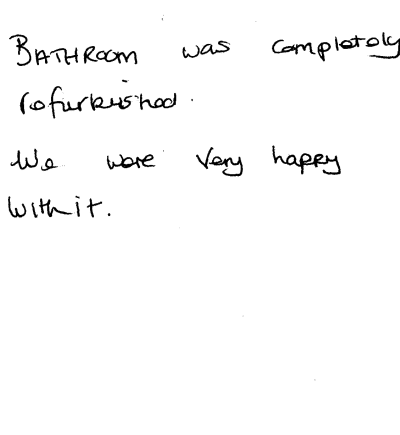 BATHROOM was completely
refurbished.
We were very happy
with it.